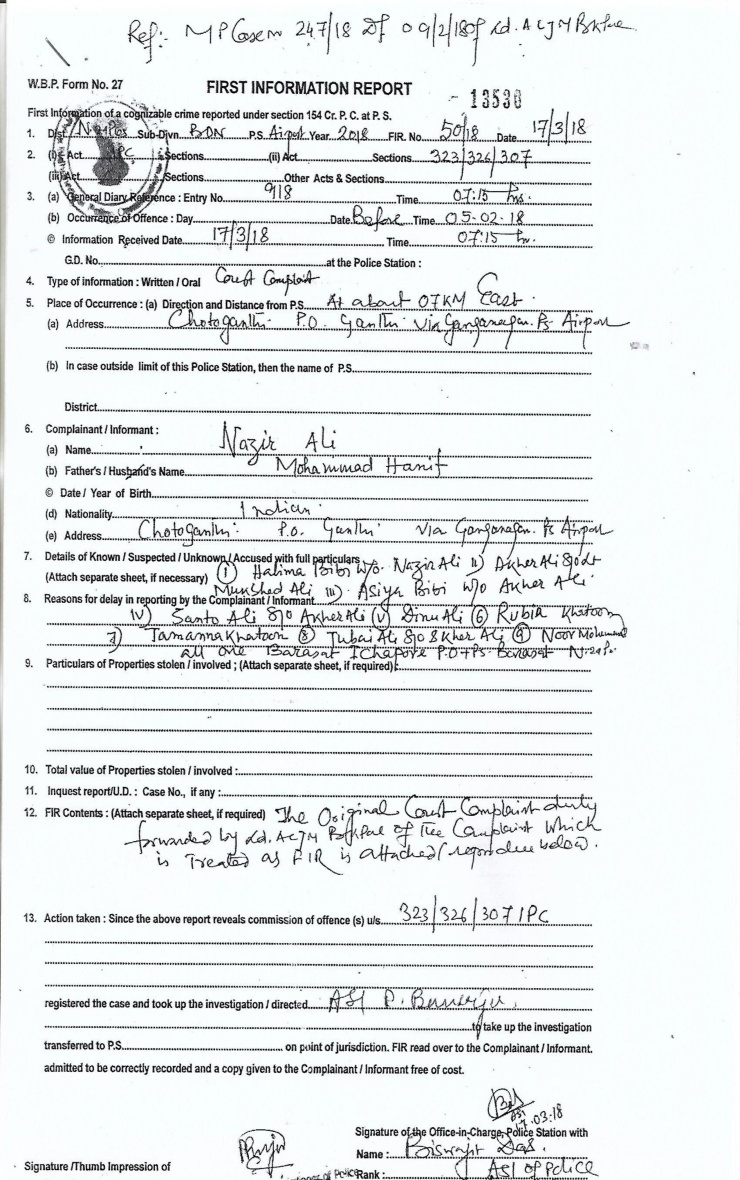 Ref: MP Case no 247/18 Dt 09/2/18 of Ld. ACJM Bkpore
W.B.P. Form No. 27
FIRST INFORMATION REPORT
- 13530
First Information of a cognizable crime reported under section 154 Cr. P. C. at P. S.
1. Dist. N 24 Pgs Sub-Divn. BDN P.S. Airport Year 2018 FIR. No. 50/18 Date 17/3/18
2. (i) Act. IPC Sections (ii) Act Sections 323/326/307
(iii) Act Sections Other Acts & Sections
3. (a) General Diary Reference : Entry No. 918 Time 07:15 hrs.
(b) Occurrence of Offence : Day Date Before Time 05-02-18
© Information Received Date 17/3/18 Time 07:15 hr.
G.D. No. at the Police Station :
4. Type of information : Written / Oral Court Complaint
5. Place of Occurrence : (a) Direction and Distance from P.S. At about 07KM East.
(a) Address Chotoganthi P.O. Ganthi via Ganganagar. Ps Airport
(b) In case outside limit of this Police Station, then the name of P.S.
District
6. Complainant / Informant :
(a) Name Nazir Ali
(b) Father's / Husband's Name Mohammad Hanif
© Date / Year of Birth
(d) Nationality Indian
(e) Address Chotoganthi P.O. Ganthi Via Ganganagar. Ps Airport
7. Details of Known / Suspected / Unknown / Accused with full particulars
(Attach separate sheet, if necessary) (1) Halima Bibi W/o. Nazir Ali ii) Akher Ali S/o Lt
Murshed Ali iii) Asiya Bibi w/o Akher Ali
8. Reasons for delay in reporting by the Complainant / Informant
iv) Santo Ali S/o Akher Ali (v) Dinu Ali (6) Rubia Khatoon
7) Tamanna Khatoon (8) Tubai Ali S/o Skher Ali (9) Noor Mohammad
all are Barasat Ichapore P.O+Ps- Barasat N. 24 Ps.
9. Particulars of Properties stolen / involved ; (Attach separate sheet, if required) :
10. Total value of Properties stolen / involved :
11. Inquest report/U.D. : Case No., if any :
12. FIR Contents : (Attach separate sheet, if required) The Original Court Complaint duly
forwarded by Ld. ACJM Bkpore of the Complaint which
is Treated as FIR is attached / reproduce below.
13. Action taken : Since the above report reveals commission of offence (s) u/s. 323/326/307 IPC
registered the case and took up the investigation / directed ASI P. Banerjee
to take up the investigation
transferred to P.S. on point of jurisdiction. FIR read over to the Complainant / Informant.
admitted to be correctly recorded and a copy given to the Complainant / Informant free of cost.
03:18
Signature of the Office-in-Charge, Police Station with
Name : Biswajit Das.
Signature /Thumb Impression of
Rank : ASI of Police